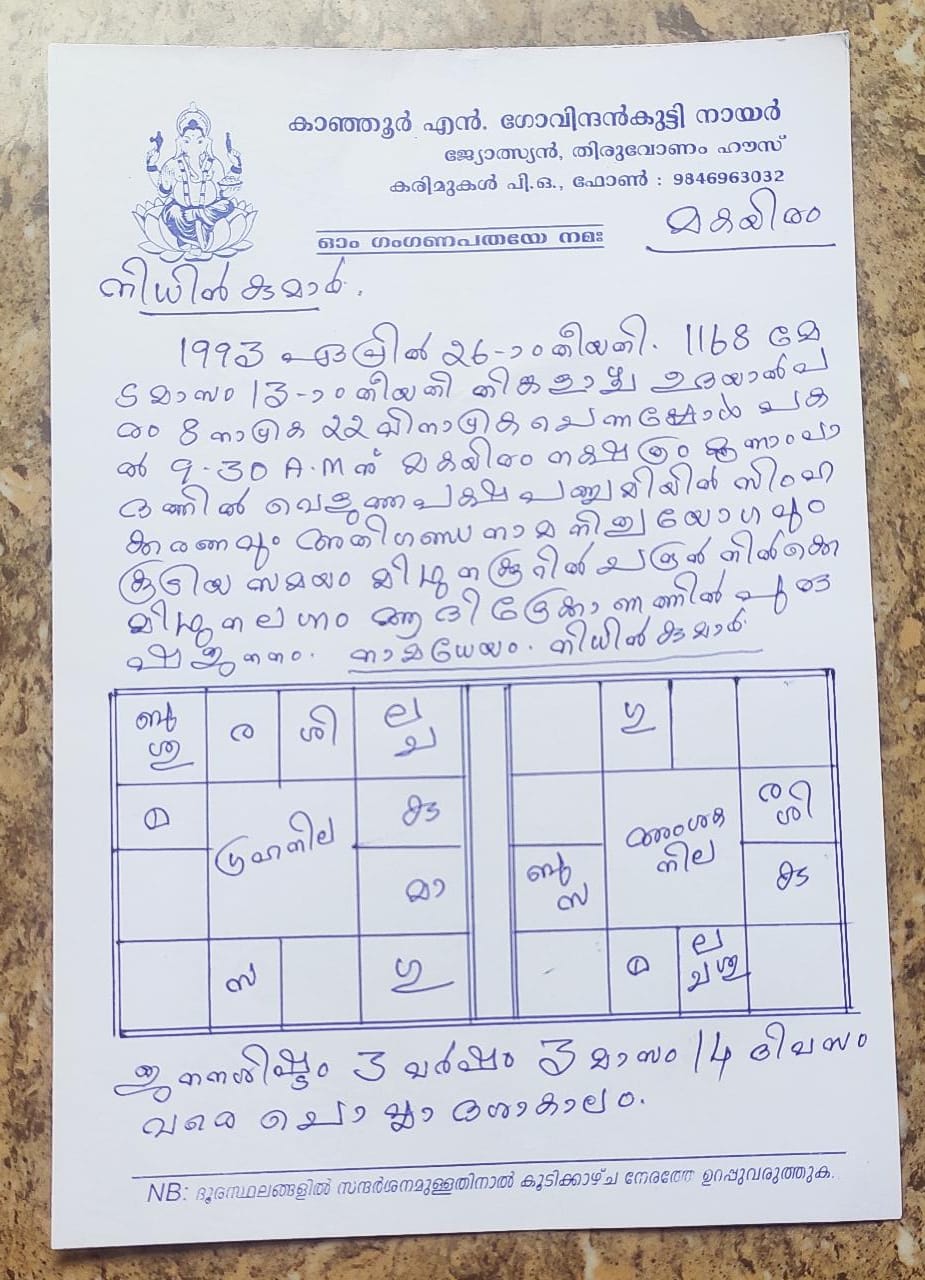 കാഞ്ഞൂർ എൻ. ഗോവിന്ദൻകുട്ടി നായർ
ജ്യോത്സ്യൻ, തിരുവോണം ഹൗസ്
കരിമുകൾ പി.ഒ., ഫോൺ : 9846963032
ഓം ഗംഗണപതയേ നമഃ
മകയിരം
നിധിൻ കുമാർ.
1993 ഏപ്രിൽ 26-ാം തീയതി. 1168 മേ
ടമാസം 13-ാം തീയതി തിങ്കളാഴ്ച ഉദയാൽപ
രം 8 നാഴിക 22 വിനാഴിക ചെന്നപ്പോൾ പക
ൽ 9-30 A.M ന് മകയിരം നക്ഷത്രം മൂന്നാംപാ
ദത്തിൽ വെളുത്തപക്ഷ പഞ്ചമിയിൽ സിംഹ
ക്കരണവും അതിഗണ്ഡനാമനിത്യയോഗവും
കൂടിയ സമയം മിഥുനക്കൂറിൽ ചന്ദ്രൻ നിൽക്കെ
മിഥുനലഗ്നം ആദിദ്രേക്കാണത്തിൽ പുരു
ഷജനനം. നാമധേയം. നിധിൻ കുമാർ.
ബു ശു
ര
ശി
ല ച
മ
ഗ്രഹനില
കു
മാ
സ
ഗു
ഗു
അംശക നില
ര ശി
ബു സ
കു
മ
ല ച ശു
ജനനശിഷ്ടം 3 വർഷം 3 മാസം 14 ദിവസം
വരെ ചൊവ്വാദശാകാലം.
NB: ദൂരസ്ഥലങ്ങളിൽ സന്ദർശനമുള്ളതിനാൽ കൂടിക്കാഴ്ച നേരത്തേ ഉറപ്പുവരുത്തുക.